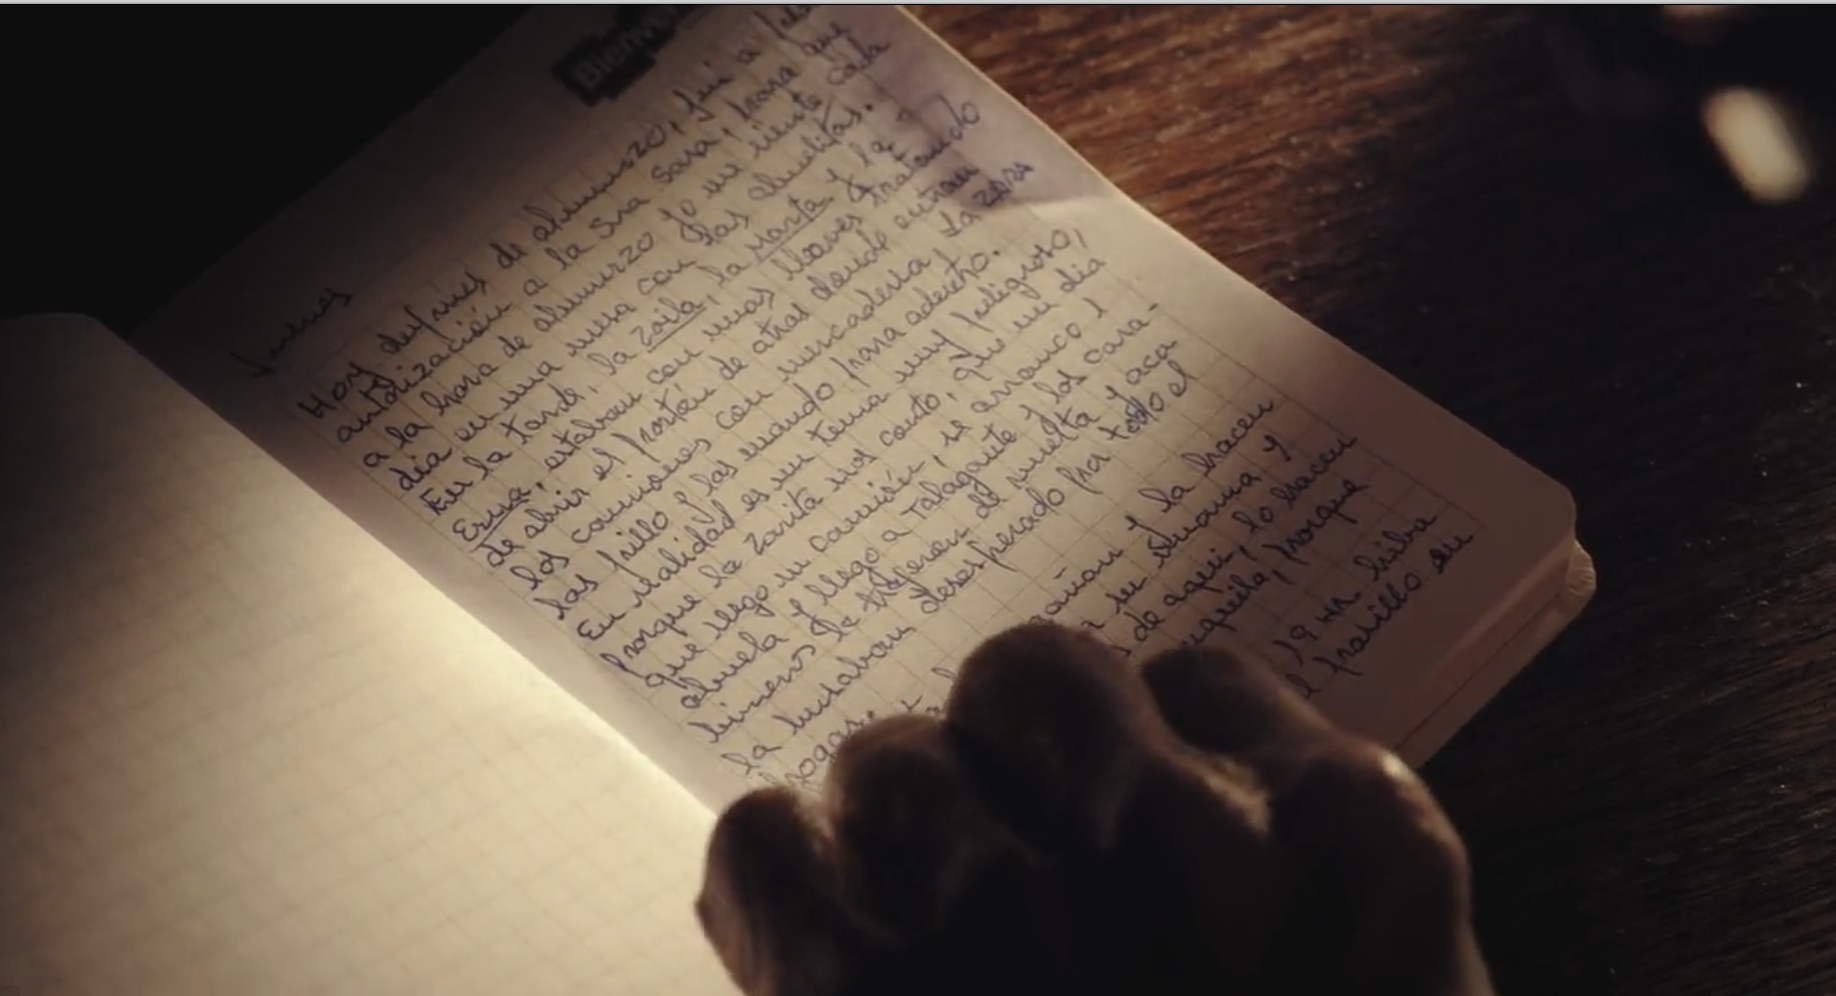 Bienve
Jueves
Hoy después de almuerzo, fui a
autorización a la Sra Sara, para que
a la hora de almuerzo yo me siente cada
día en una mesa con las abuelitas.
En la tarde, la Zoila, la Marta y la
Erna, estaban con unas llaves tratando
de abrir el portón de atras donde entran
los camiones con mercaderia, La Zara
las pillo y las mando para adentro.
En realidad es un tema muy peligroso,
porque la Zarita nos conto, que un dia
que llego un camión, se arranco 1
abuela y llego a Talagante y los cara-
bineros la trajeron de vuelta y aca
la buscaban desesperado por todo el
hogar.
y la hacen
su mama y
de aqui, lo hacen
porque
19 hr. hiba
pasillo en